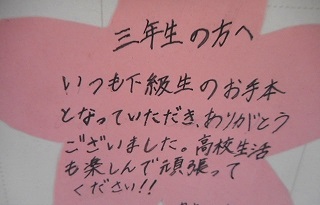 三年生の方へ
いつも下級生のお手本
となっていただき、ありがとう
ございました。高校生活
も楽しんで頑張って
ください!!